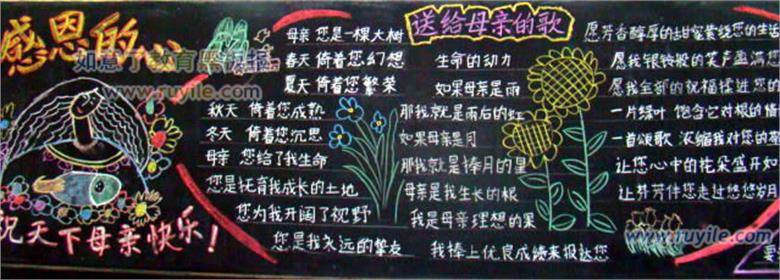 感恩的心
如意了教育黑板报
www.ruyile.com
祝天下母亲快乐！
母亲 您是一棵大树
春天 倚着您幻想
夏天 倚着您繁荣
秋天 倚着您成熟
冬天 倚着您沉思
母亲 您给了我生命
您是抚育我成长的土地
您为我开阔了视野
您是我永远的挚友
送给母亲的歌
生命的动力
如果母亲是雨
那我就是雨后的虹
如果母亲是月
那我就是捧月的星
母亲是我生长的根
我是母亲理想的果
我捧上优良成绩来报达您
愿芳香醇厚的甘蜜萦绕您的生活
愿我银铃般的笑声盈满您
愿我全部的祝福揉进您的
一片绿叶 饱含它对根的情
一首颂歌 浓缩我对您的
让您心中的花朵盛开如
让芬芳伴您走过悠悠岁月
www.ruyile.com